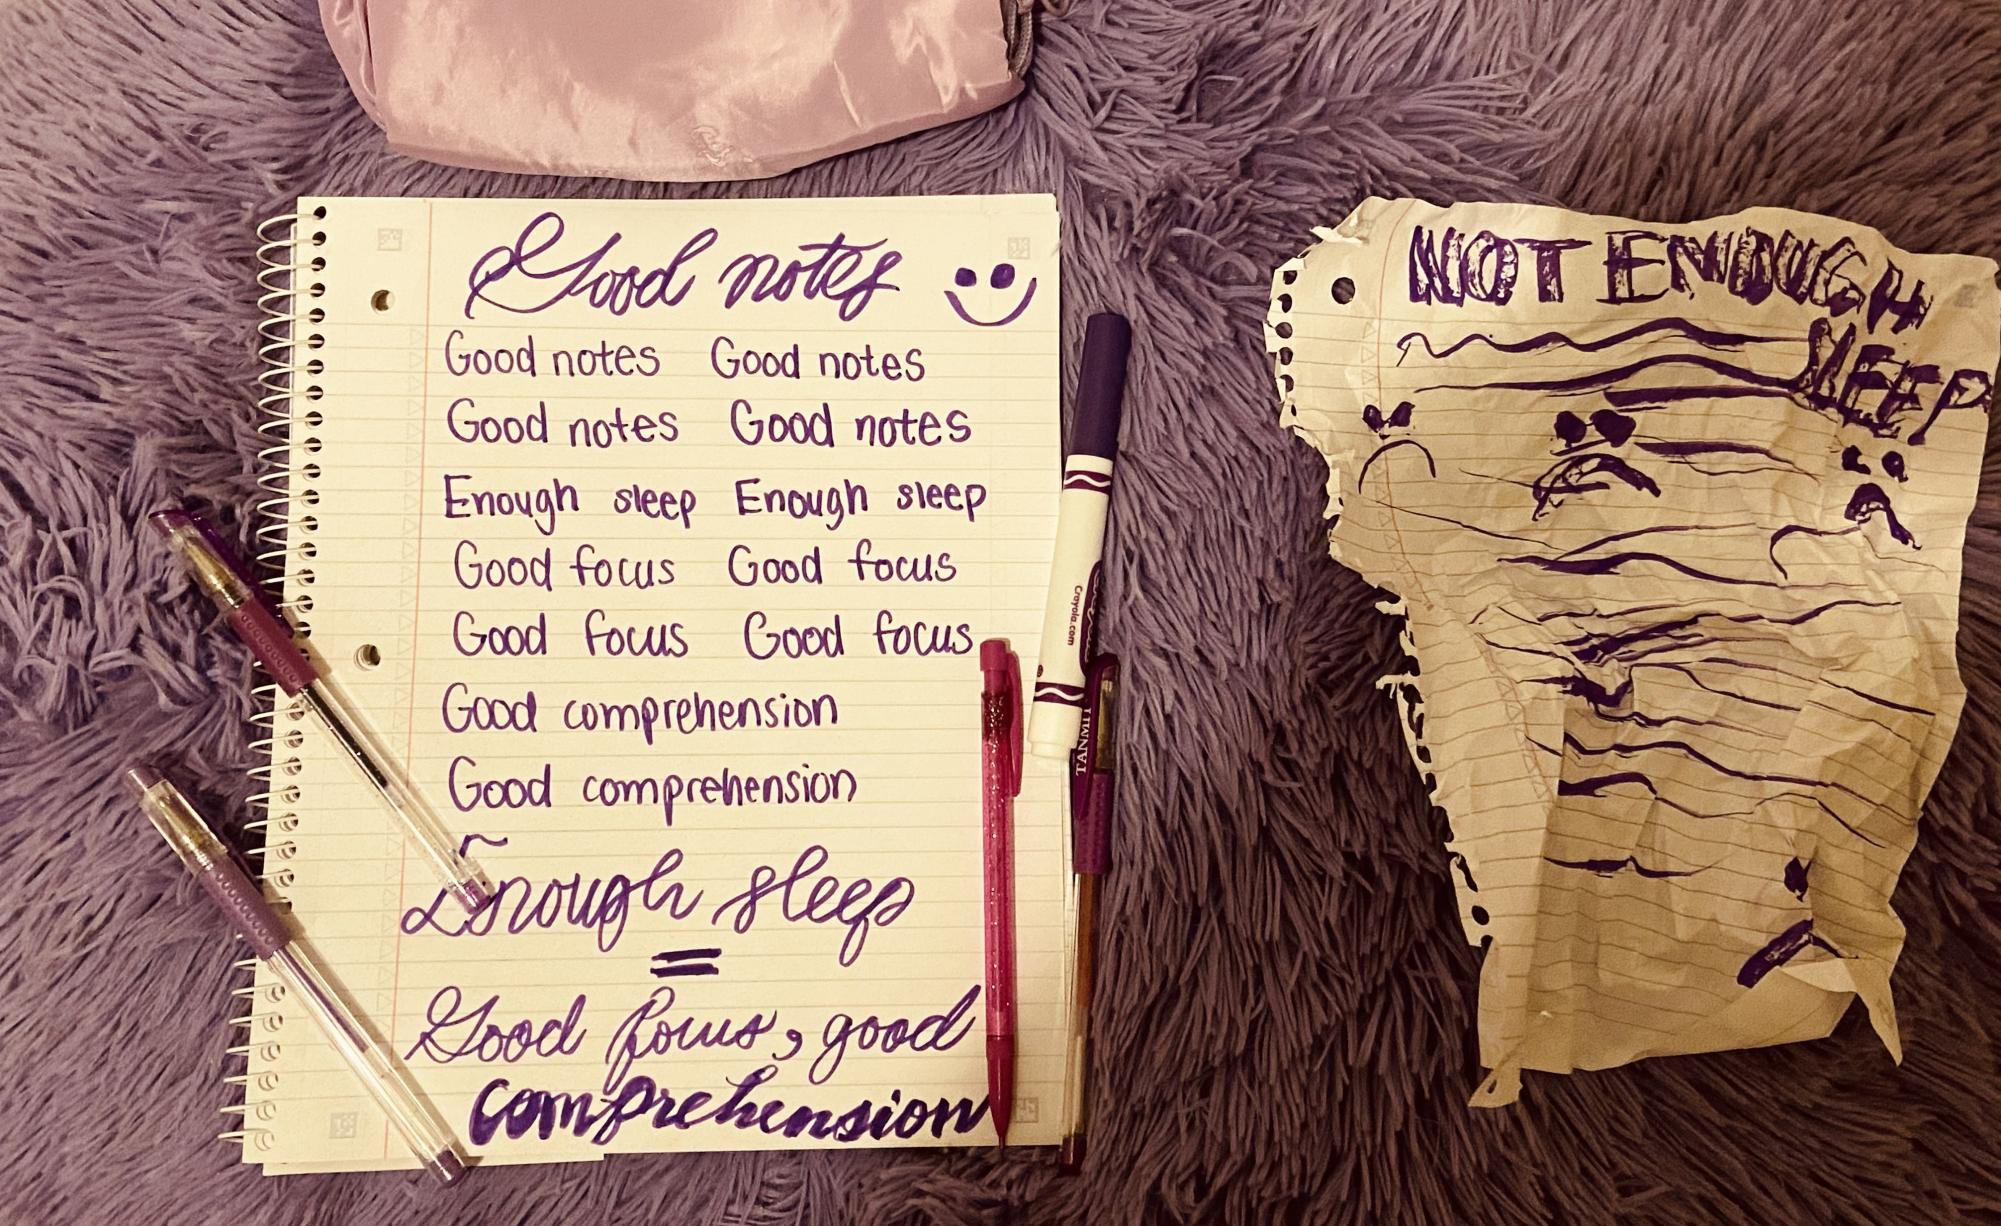 Good notes
Good notes Good notes
Good notes Good notes
Enough sleep Enough sleep
Good focus Good focus
Good focus Good focus
Good comprehension
Good comprehension
Enough sleep
=
Good focus, good
comprehension
Crayola.com
TANMIT
NOT ENOUGH
SLEEP